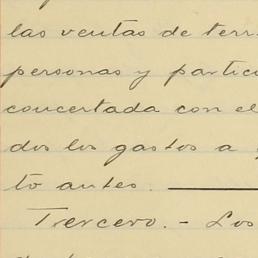 las ventas de terr
personas y particu
concertada con el
dos los gastos a
to antes.
Tercero.- Los